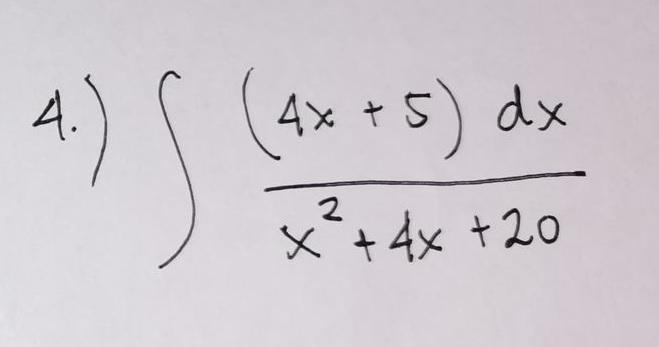 4.) ∫ (4x + 5) dx
x² + 4x + 20